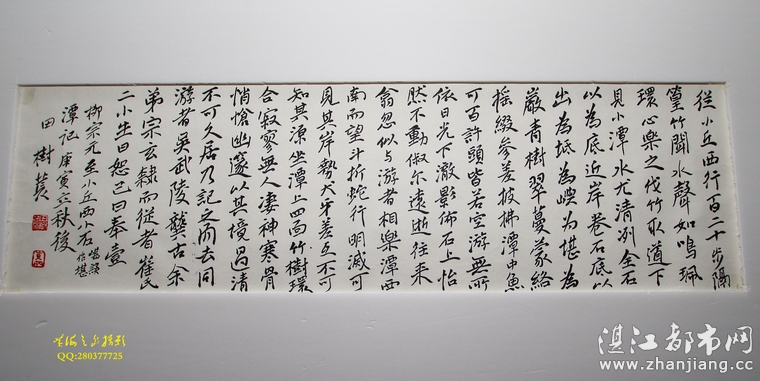 從小丘西行百二十步隔
篁竹聞水聲如鳴珮
環心樂之伐竹取道下
見小潭水尤清洌全石
以為底近岸卷石底以
出為坻為嶼為堪為
巖青樹翠蔓蒙絡
搖綴參差披拂潭中魚
可百許頭皆若空游無所
依日光下澈影佈石上怡
然不動俶尔遠逝往来
翕忽似与游者相樂潭西
南而望斗折蛇行明滅可
見其岸勢犬牙差互不可
知其源坐潭上四面竹樹環
合寂寥無人凄神寒骨
悄愴幽邃以其境過清
不可久居乃記之而去同
游者吳武陵龔古余
弟宗玄隸而從者崔氏
二小生曰恕己曰奉壹
柳宗元至小丘西小石
嵁誤作堪
潭記庚寅之秋後
田樹萇
QQ:280377725
湛江都市网
www.zhanjiang.cc